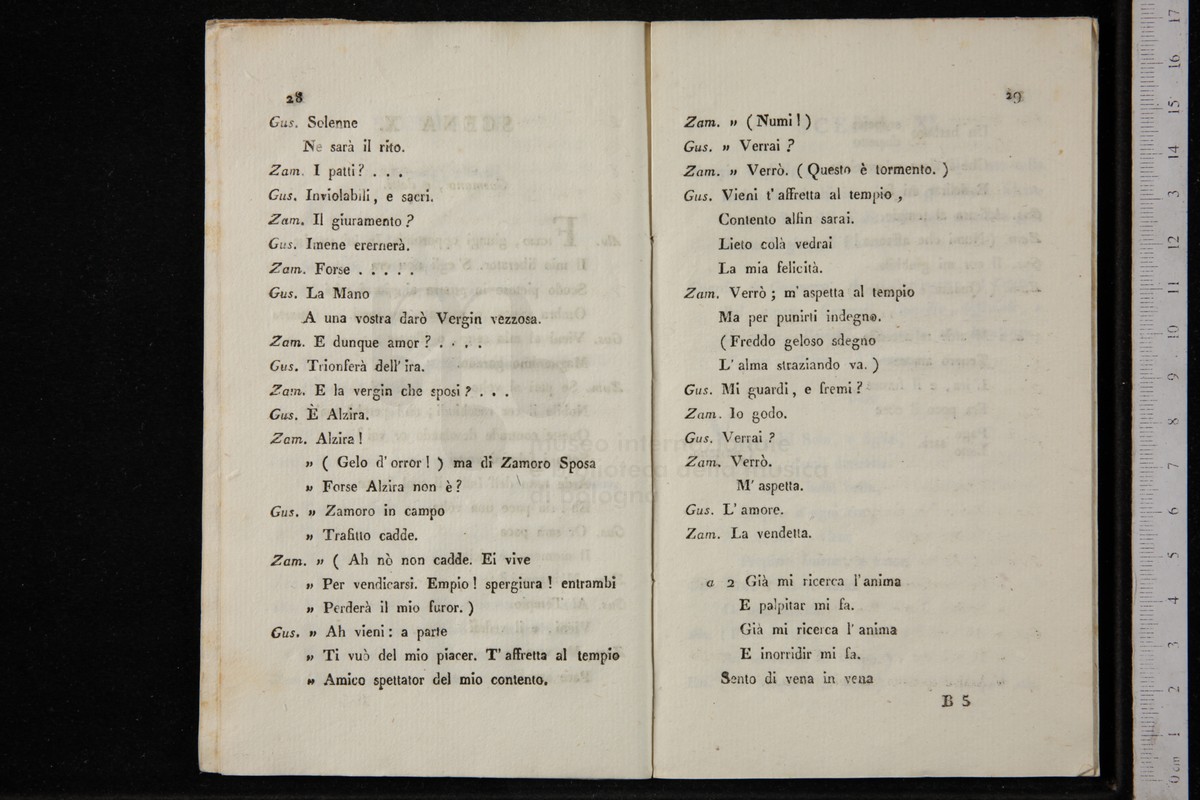 28
Gus. Solenne
Ne sarà il rito.
Zam. I patti? . . .
Gus. Inviolabili, e sacri.
Zam. Il giuramento?
Gus. Imene erernerà.
Zam. Forse . . . . .
Gus. La Mano
A una vostra darò Vergin vezzosa.
Zam. E dunque amor? . . . .
Gus. Trionferà dell' ira.
Zam. E la vergin che sposi? . . .
Gus. È Alzira.
Zam. Alzira!
» ( Gelo d' orror! ) ma di Zamoro Sposa
» Forse Alzira non è?
Gus. » Zamoro in campo
» Trafitto cadde.
Zam. » ( Ah nò non cadde. Ei vive
» Per vendicarsi. Empio! spergiura! entrambi
» Perderà il mio furor. )
Gus. » Ah vieni: a parte
» Ti vuò del mio piacer. T' affretta al tempio
» Amico spettator del mio contento.
29
Zam. » ( Numi! )
Gus. » Verrai?
Zam. » Verrò. ( Questo è tormento. )
Gus. Vieni t' affretta al tempio,
Contento alfin sarai.
Lieto colà vedrai
La mia felicità.
Zam. Verrò; m' aspetta al tempio
Ma per punirti indegno.
( Freddo geloso sdegno
L' alma straziando va. )
Gus. Mi guardi, e fremi?
Zam. Io godo.
Gus. Verrai?
Zam. Verrò.
M' aspetta.
Gus. L' amore.
Zam. La vendetta.
a 2 Già mi ricerca l' anima
E palpitar mi fa.
Già mi ricerca l' anima
E inorridir mi fa.
Sento di vena in vena
B 5
museo internazionale
e biblioteca della musica
di bologna
0 cm 1 2 3 4 5 6 7 8 9 10 11 12 13 14 15 16 17